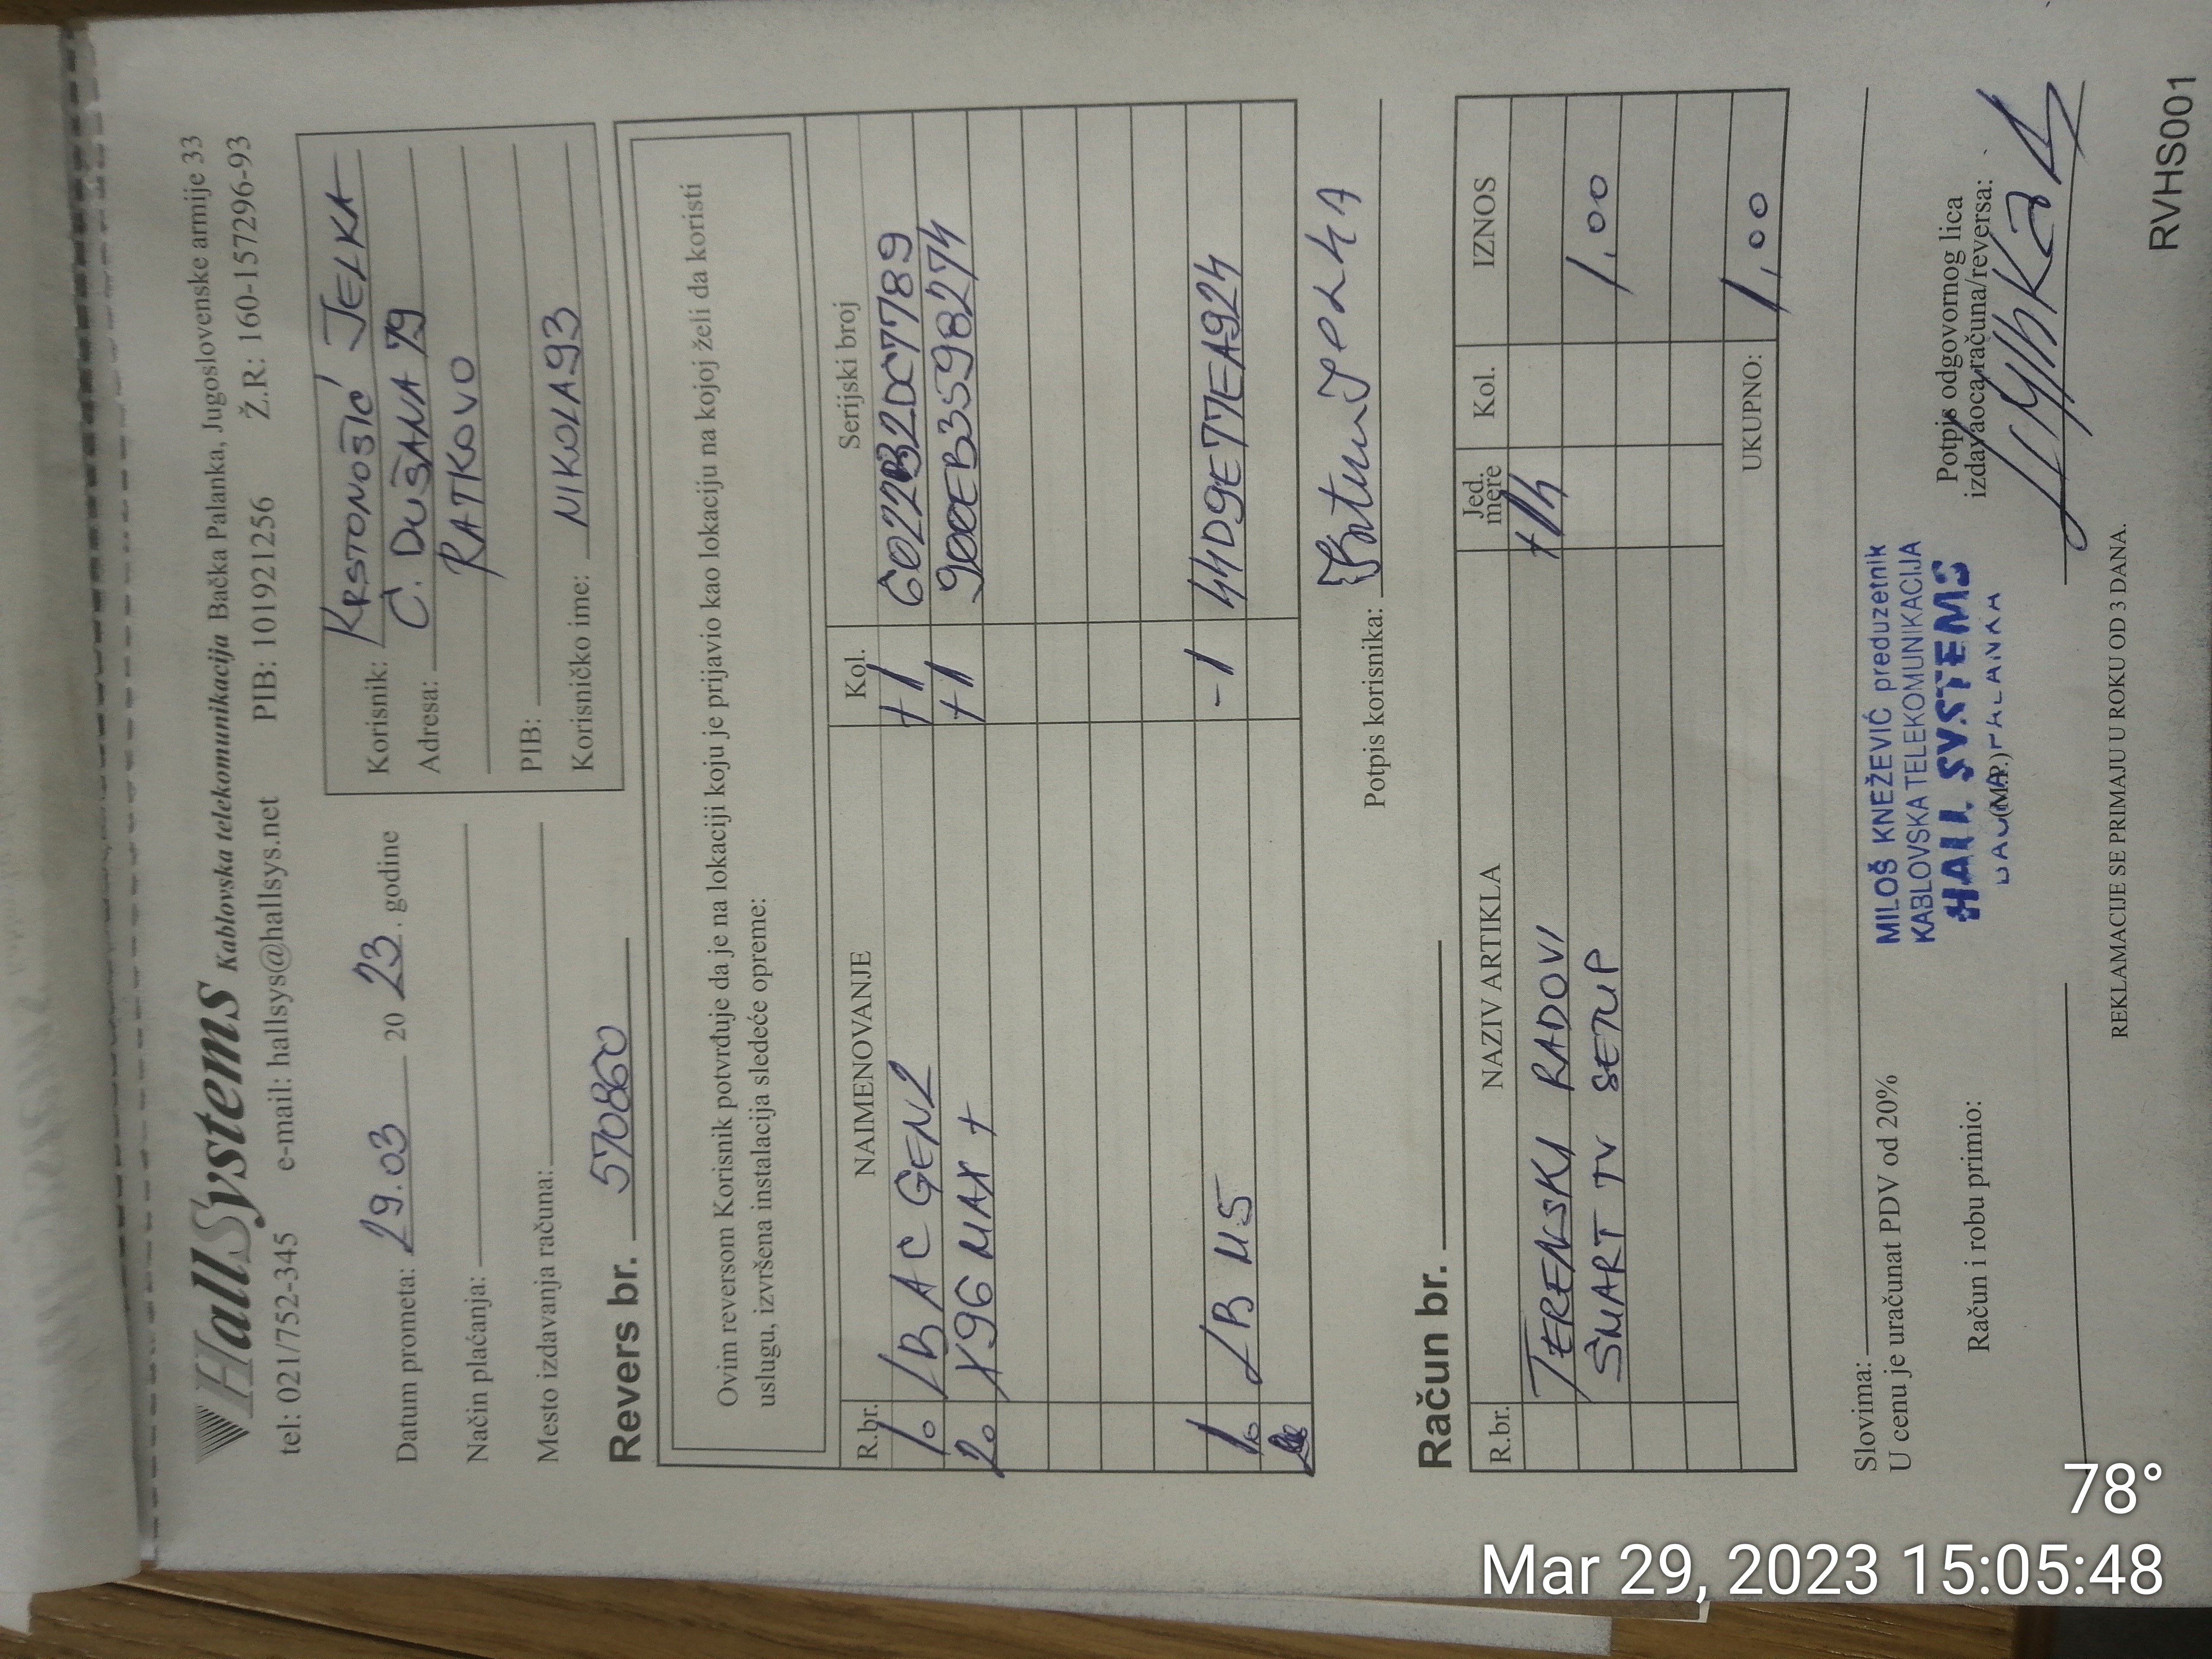 HallSystems Kablovska telekomunikacija Bačka Palanka, Jugoslovenske armije 33
tel: 021/752-345 e-mail: hallsys@hallsys.net PIB: 101921256 Ž.R: 160-157296-93
Datum prometa: 29.03 2023. godine
Način plaćanja:
Mesto izdavanja računa:
Korisnik: KRSTONOŠIĆ JELKA
Adresa: C. DUŠANA 79
RATKOVO
PIB:
Korisničko ime: NIKOLA93
Revers br. 570860
Ovim reversom Korisnik potvrđuje da je na lokaciji koju je prijavio kao lokaciju na kojoj želi da koristi
uslugu, izvršena instalacija sledeće opreme:
R.br. NAIMENOVANJE Kol. Serijski broj
1. LB AC GEN2 +1 6022B2DC7789
2. X96 MAX + +1 900EB3598274
1. LB M5 -1 44D9E77EA924
Potpis korisnika:
Račun br.
R.br. NAZIV ARTIKLA Jed. mere Kol. IZNOS
TERENSKI RADOVI
SMART TV SETUP 1,00
UKUPNO: 1,00
Slovima:
U cenu je uračunat PDV od 20%
MILOŠ KNEŽEVIĆ preduzetnik
KABLOVSKA TELEKOMUNIKACIJA
HALL SYSTEMS
BAČKA PALANKA
(M.P.)
Račun i robu primio:
Potpis odgovornog lica
izdavaoca računa/reversa:
REKLAMACIJE SE PRIMAJU U ROKU OD 3 DANA.
RVHS001
78°
Mar 29, 2023 15:05:48